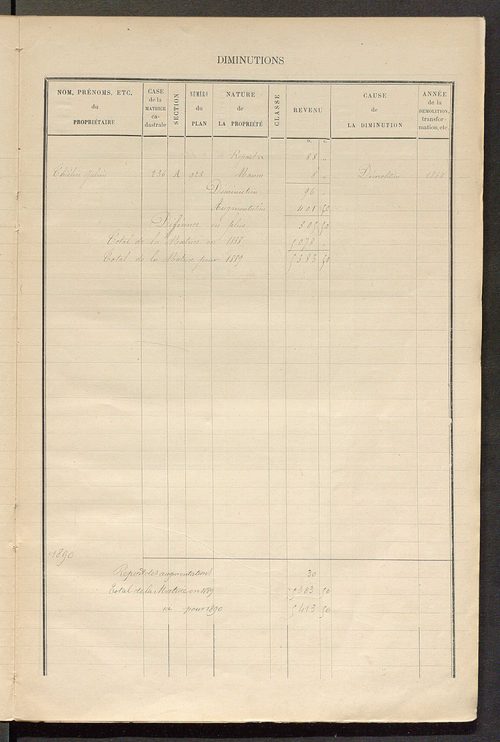 DIMINUTIONS
NOM, PRÉNOMS, ETC. du PROPRIÉTAIRE
CASE de la MATRICE ca- dastrale
SECTION
NUMÉRO du PLAN
NATURE de LA PROPRIÉTÉ
CLASSE
REVENU
CAUSE de LA DIMINUTION
ANNÉE de la DÉMOLITION, transfor- mation, etc.
Report 88 "
236 A 928 Maison 8 " Démolition
Diminution 96 "
Augmentation 401 50
Différence en plus 305 50
Total de la Matrice en 1888 5078 "
Total de la Matrice pour 1889 5383 50
1890
Report des augmentations 30
Total de la Matrice en 1889 5383 50
pour 1890 5413 50